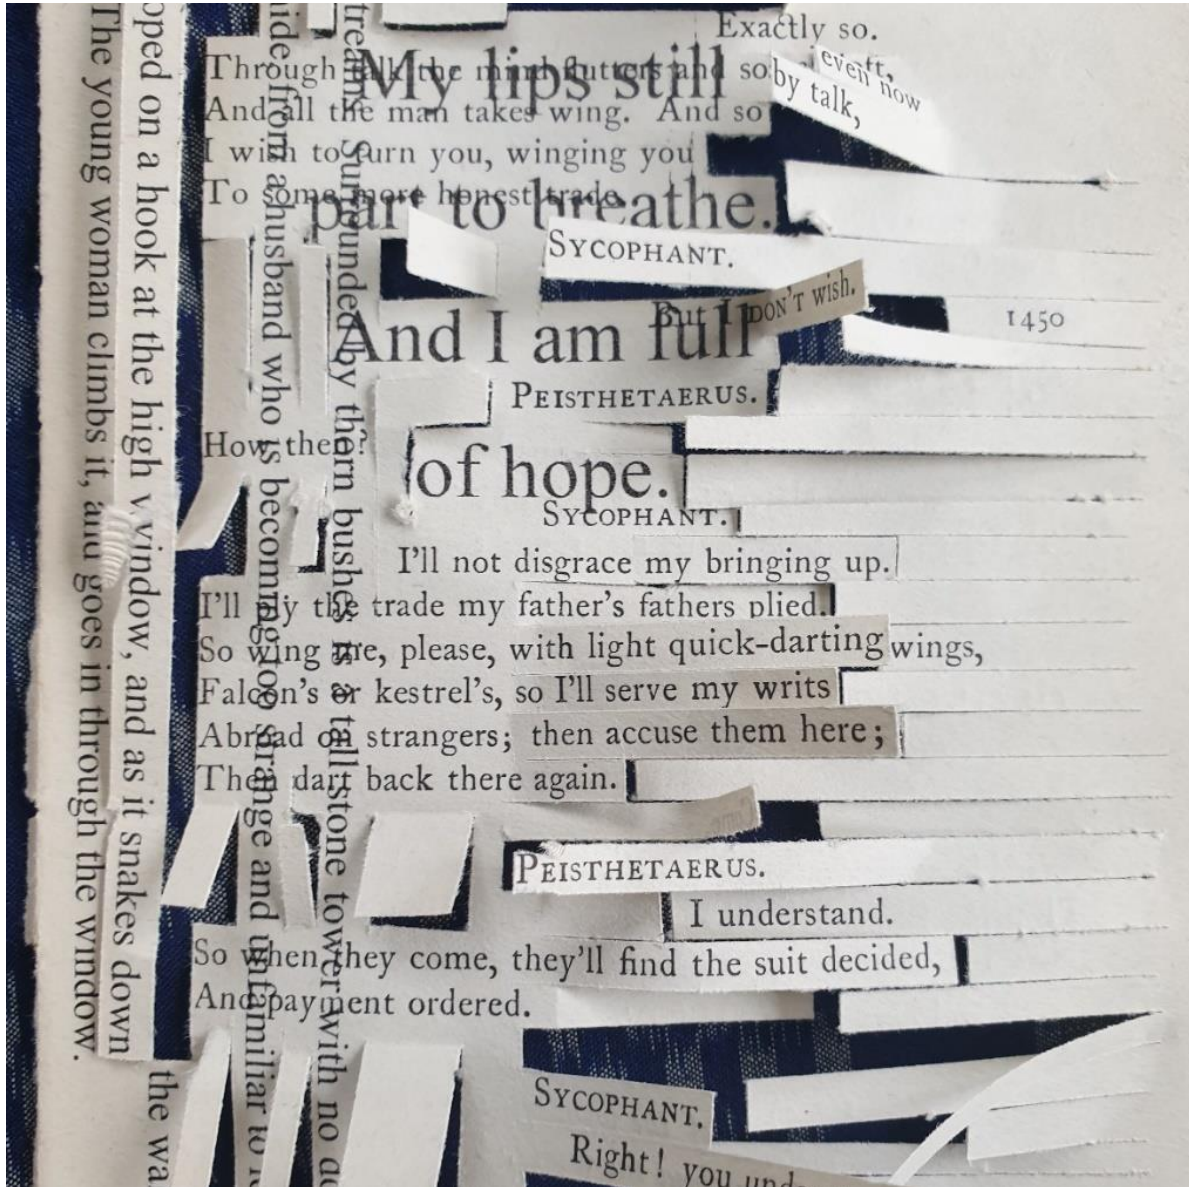 Exactly so.
Through talk the mind flutters and so
My lips still
even now
by talk,
And all the man takes wing. And so
I wish to turn you, winging you
To some more honest trade.
part to breathe.
SYCOPHANT.
But I DON'T wish.
And I am full
1450
PEISTHETAERUS.
How then?
of hope.
SYCOPHANT.
I'll not disgrace my bringing up.
I'll ply the trade my father's fathers plied.
So wing me, please, with light quick-darting wings,
Falcon's or kestrel's, so I'll serve my writs
Abroad on strangers; then accuse them here;
Then dart back there again.
PEISTHETAERUS.
I understand.
So when they come, they'll find the suit decided,
And payment ordered.
SYCOPHANT.
Right! you
The young woman climbs it, and goes in through the window.
oped on a hook at the high window, and as it snakes down
the wa
ide from a husband who is becoming too strange and unfamiliar to
Surrounded by thorn bushes is a tall stone tower with no